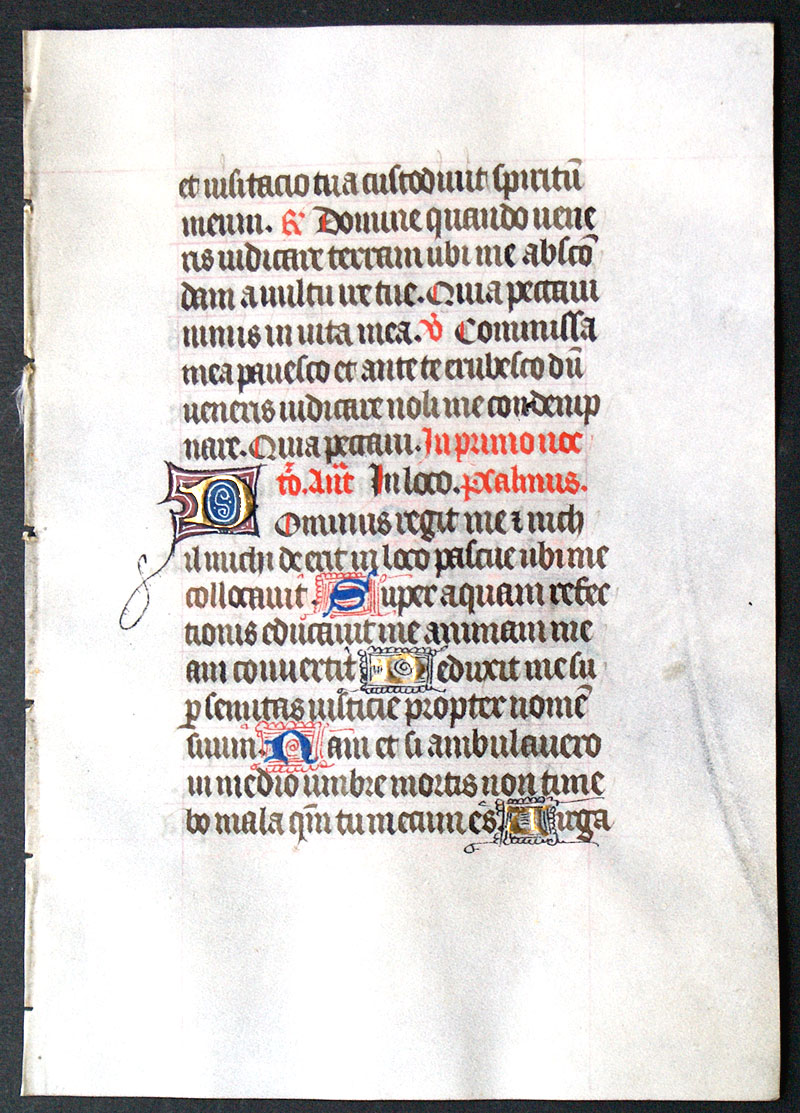 et visitacio tua custodivit spiritū
meum. R̃ Domine quando vene
ris iudicare terram ubi me abscō
dam a vultu ire tue. Quia peccavi
nimis in vita mea. v̾ Commissa
mea pavesco et ante te erubesco dū
veneris iudicare noli me condemp
nare. Quia peccavi. In primo noc
t̾o. Añt In loco. psalmus.
Dominus regit me ⁊ nich
il michi deerit in loco pascue ubi me
collocavit. Super aquam refec
tionis educavit me animam me
am convertit Deduxit me su
ꝑ semitas iusticie propter nomē
suum. Nam et si ambulavero
in medio umbre mortis non time
bo mala qm̄ tu mecum es. Virga